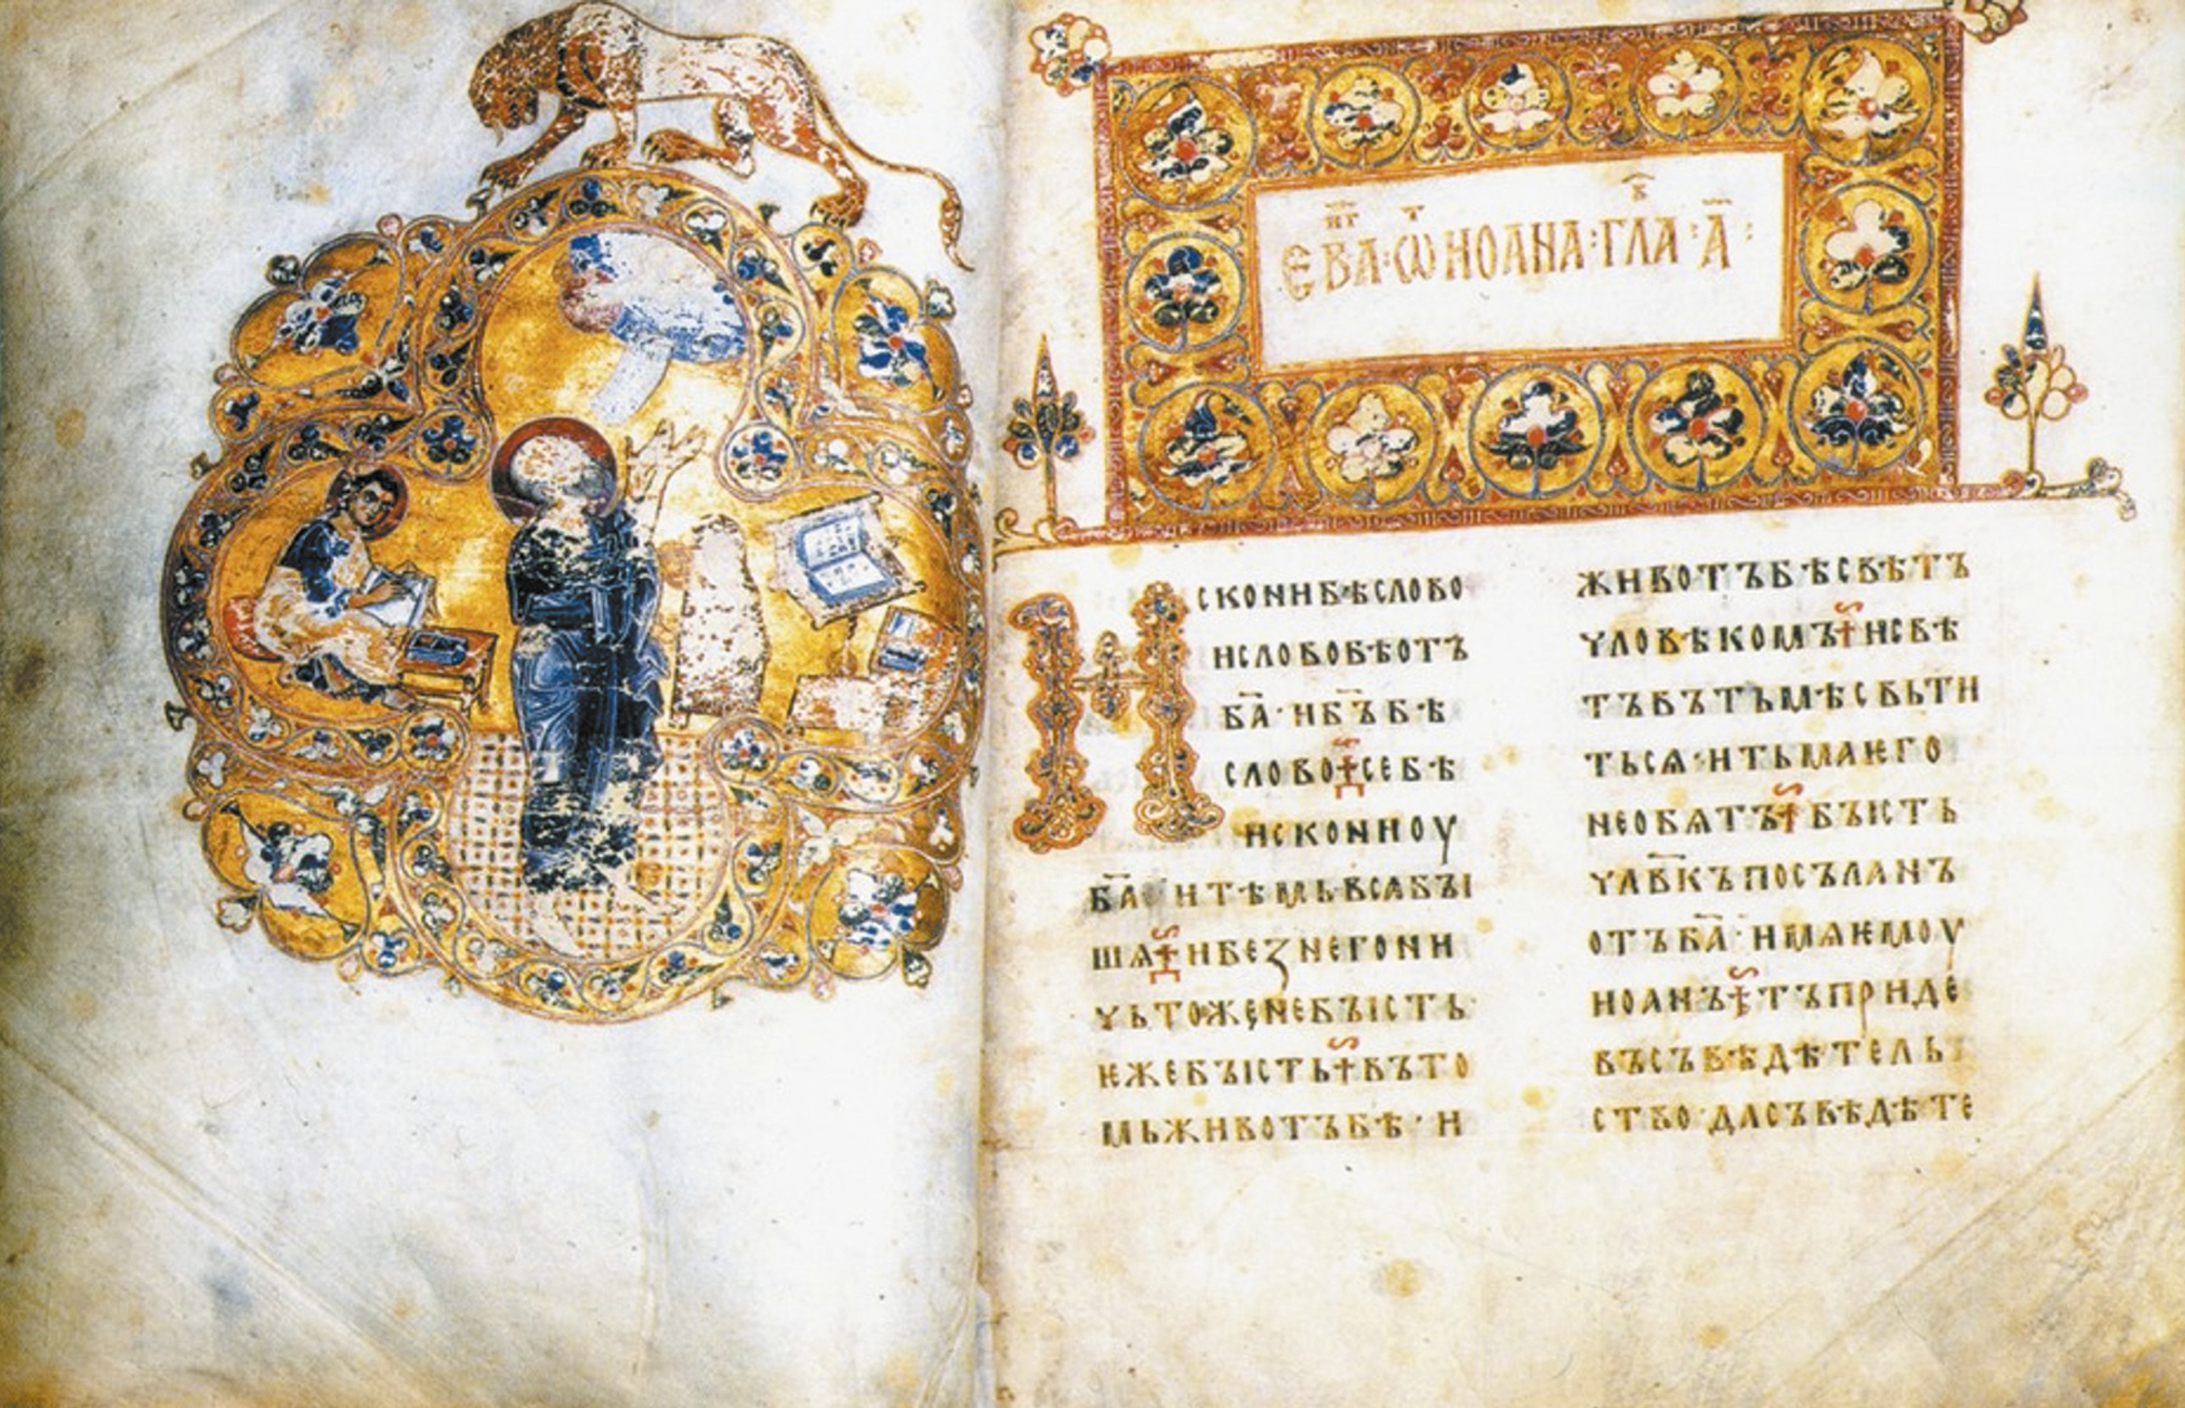 ЕВА҃ГГ · Ѡ҃Т ИОАНА : ГЛАВ · А҃ :
Искони бѣ слово
и слово бѣ отъ
б҃а · и б҃ъ бѣ
слово ⁜ се бѣ
искони оу
б҃а и тѣмь вся бы
шѧ ⁜ и без него ни
чьтоже не бысть
ѥже бысть ⁜ въ то
мь животъ бѣ · и
животъ бѣ свѣтъ
чловѣкомъ ⁜ и свѣ
тъ въ тьмѣ свьти
тьсѧ · и тьма ѥго
не обѧтъ ⁜ бысть
чл҃вкъ посъланъ
отъ б҃а · имѧ ѥмоу
иоанъ ⁜ тъ приде
въ съвѣдѣтель
ство · да съвѣдѣте